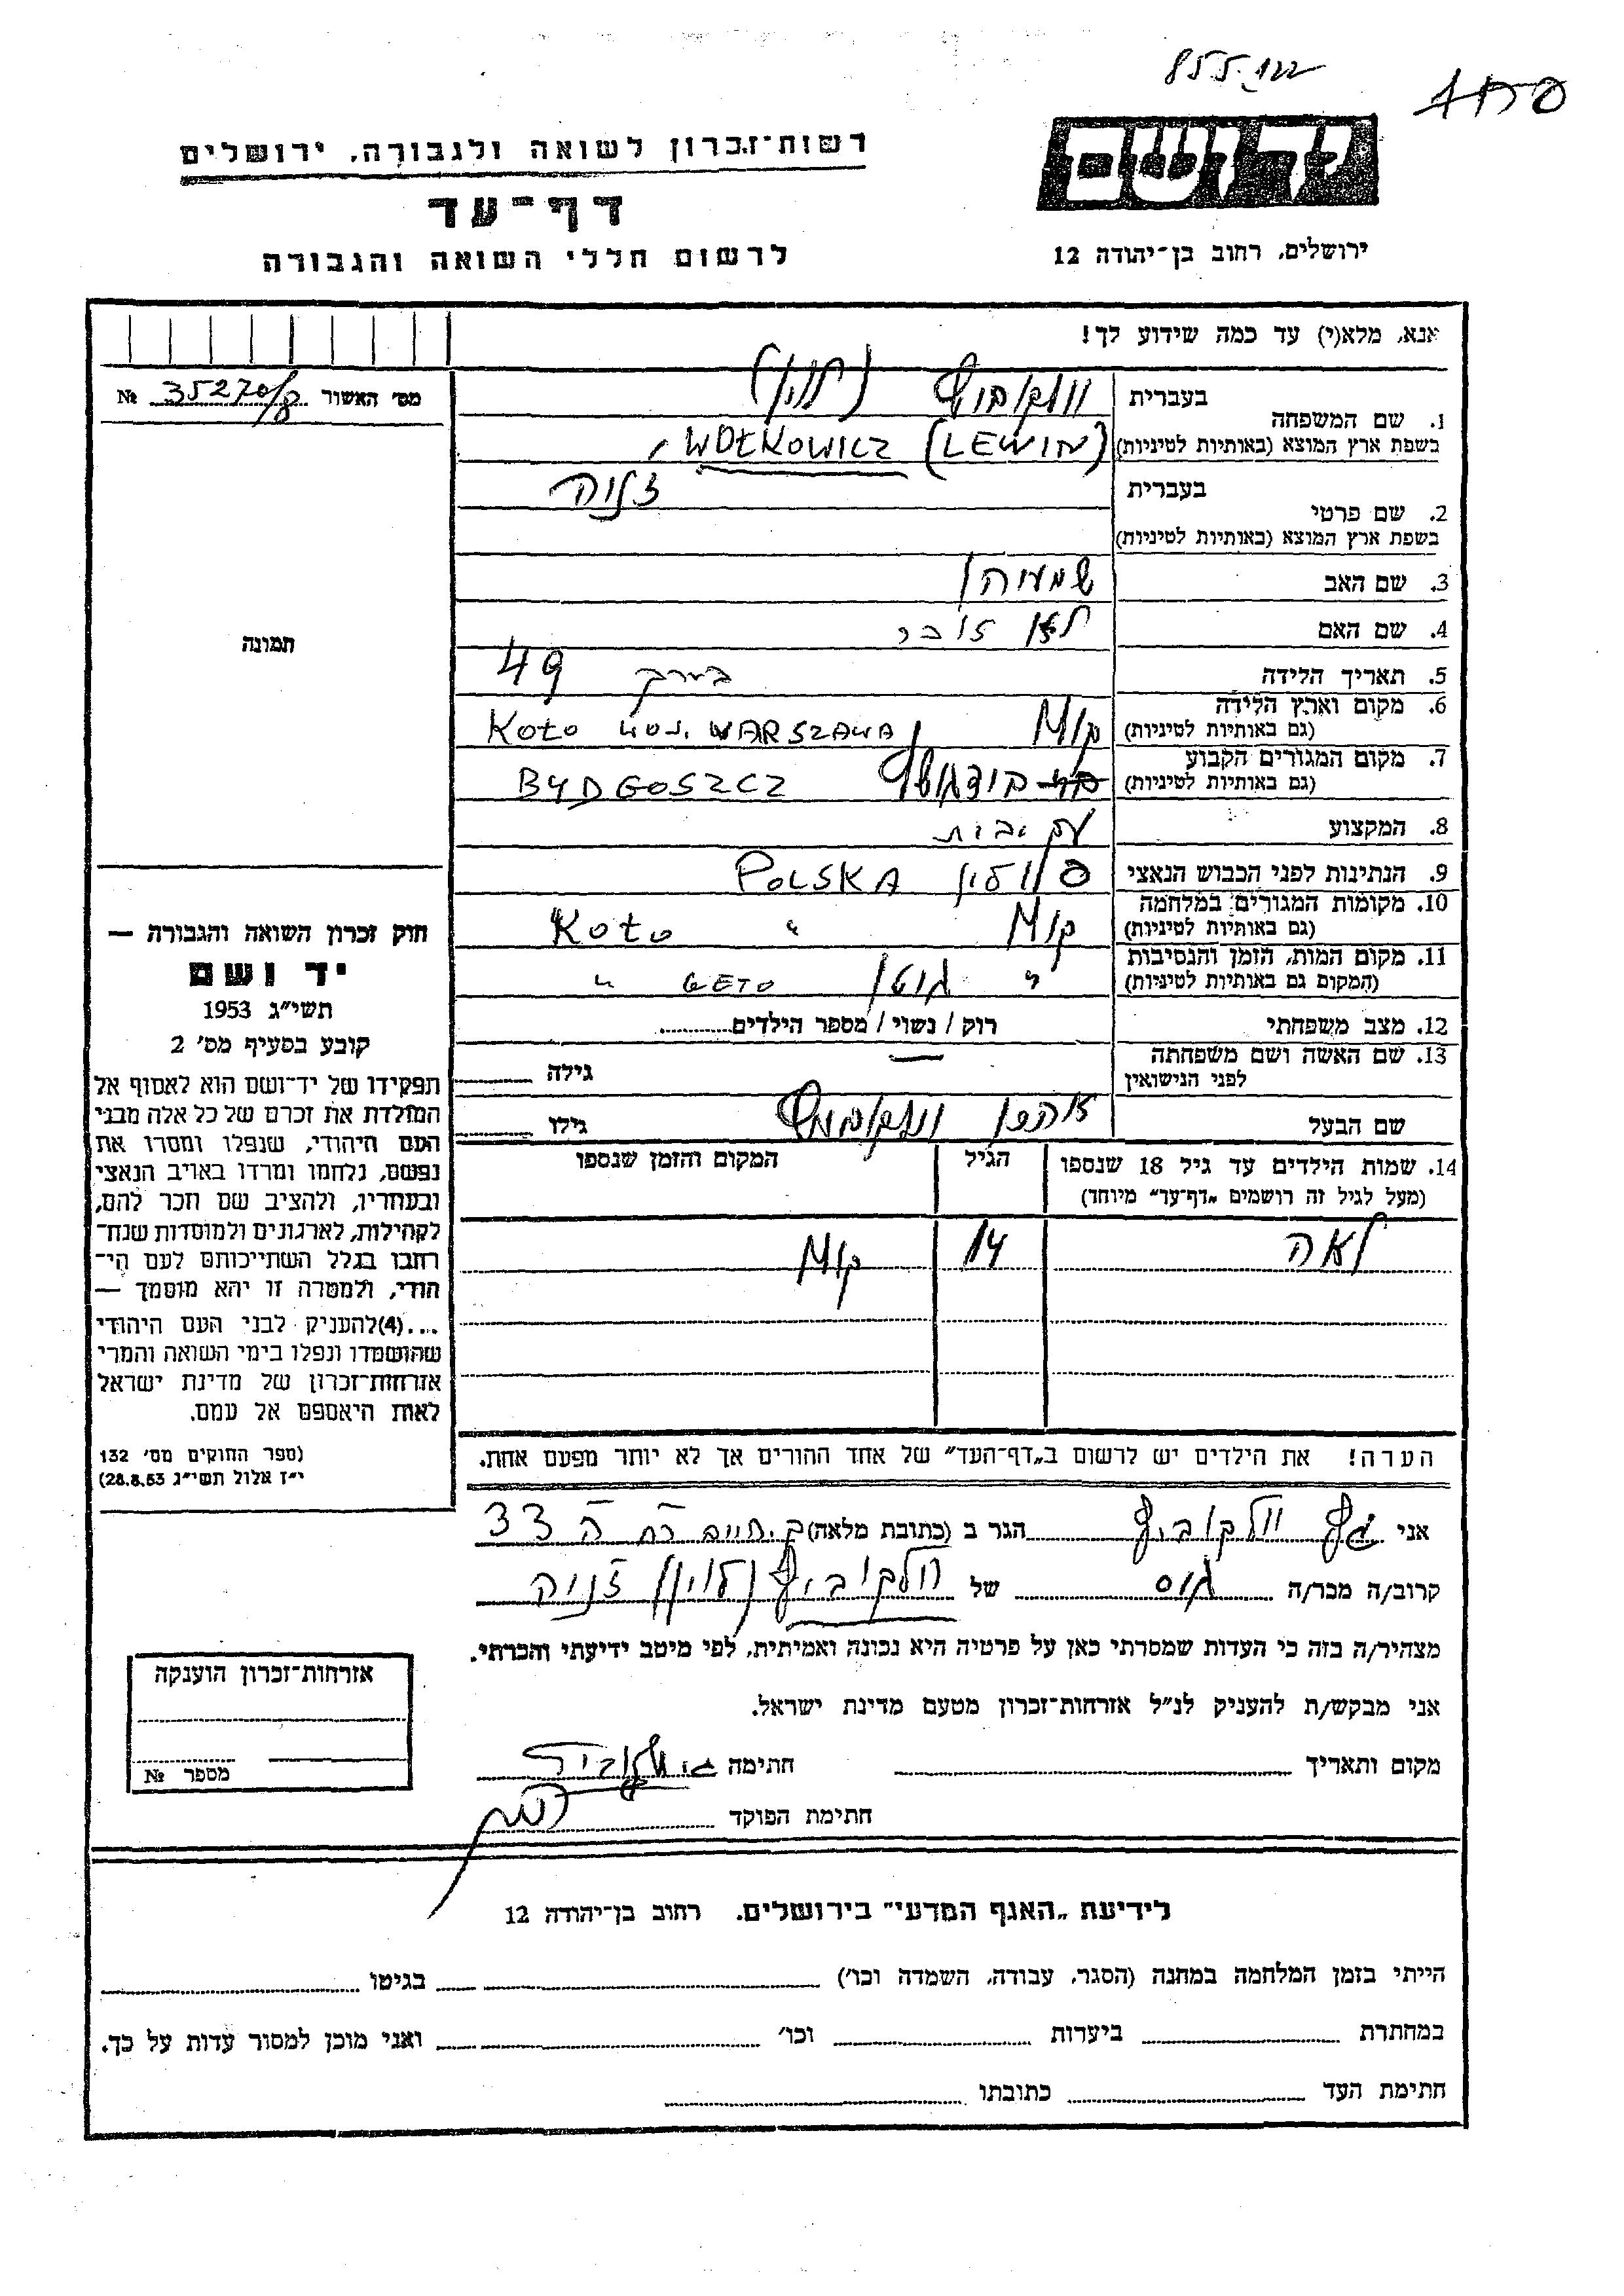 855.122
יד ושם
רשות־זכרון לשואה ולגבורה, ירושלים
דף־עד
לרשום חללי השואה והגבורה
ירושלים, רחוב בן־יהודה 12
אנא, מלא(י) עד כמה שידוע לך!
מס׳ האשור 35270/ק №
1. שם המשפחה
בעברית וולקוביץ (לוין)
בשפת ארץ המוצא (באותיות לטיניות) WOŁKOWICZ (LEWIN)
2. שם פרטי
בעברית זלדה
בשפת ארץ המוצא (באותיות לטיניות)
3. שם האב
4. שם האם
5. תאריך הלידה 49
6. מקום וארץ הלידה
(גם באותיות לטיניות) קולו KOŁO WARSZAWA
7. מקום המגורים הקבוע
(גם באותיות לטיניות) בידגושץ BYDGOSZCZ
8. המקצוע עקרת בית
9. הנתינות לפני הכבוש הנאצי פולין POLSKA
10. מקומות המגורים במלחמה
(גם באותיות לטיניות) קולו " KOŁO
11. מקום המות, הזמן והנסיבות
(המקום גם באותיות לטיניות) " גטו GETO "
12. מצב משפחתי רוק / נשוי / מספר הילדים
13. שם האשה ושם משפחתה
לפני הנישואין גילה
שם הבעל וולקוביץ גילו
14. שמות הילדים עד גיל 18 שנספו
(מעל לגיל זה רושמים „דף־עד״ מיוחד)
הגיל
המקום והזמן שנספו
לאה 14 קולו
הערה! את הילדים יש לרשום ב„דף־העד״ של אחד ההורים אך לא יותר מפעם אחת.
תמונה
חוק זכרון השואה והגבורה —
יד ושם
תשי״ג 1953
קובע בסעיף מס׳ 2
תפקידו של יד־ושם הוא לאסוף אל
המולדת את זכרם של כל אלה מבני
העם היהודי, שנפלו ומסרו את
נפשם, נלחמו ומרדו באויב הנאצי
ובעוזריו, ולהציב שם וזכר להם,
לקהילות, לארגונים ולמוסדות שנח־
רבו בגלל השתייכותם לעם הי־
הודי, ולמטרה זו יהא מוסמך —
...(4) להעניק לבני העם היהודי
שהושמדו ונפלו בימי השואה והמרי
אזרחות־זכרון של מדינת ישראל
לאות היאספם אל עמם.
(ספר החוקים מס׳ 132
י״ז אלול תשי״ג 28.8.53)
אני וולקוביץ הגר ב (כתובת מלאה) 33
קרוב/ה מכר/ה גיס של וולקוביץ (לוין) זלדה
מצהיר/ה בזה כי העדות שמסרתי כאן על פרטיה היא נכונה ואמיתית, לפי מיטב ידיעתי והכרתי.
אני מבקש/ת להעניק לנ״ל אזרחות־זכרון מטעם מדינת ישראל.
מקום ותאריך חתימה
חתימת הפוקד
אזרחות־זכרון הוענקה
מספר №
לידיעת „האגף המדעי״ בירושלים. רחוב בן־יהודה 12
הייתי בזמן המלחמה במחנה (הסגר, עבודה, השמדה וכו׳) בגיטו
במחתרת ביערות וכו׳ ואני מוכן למסור עדות על כך.
חתימת העד כתובתו